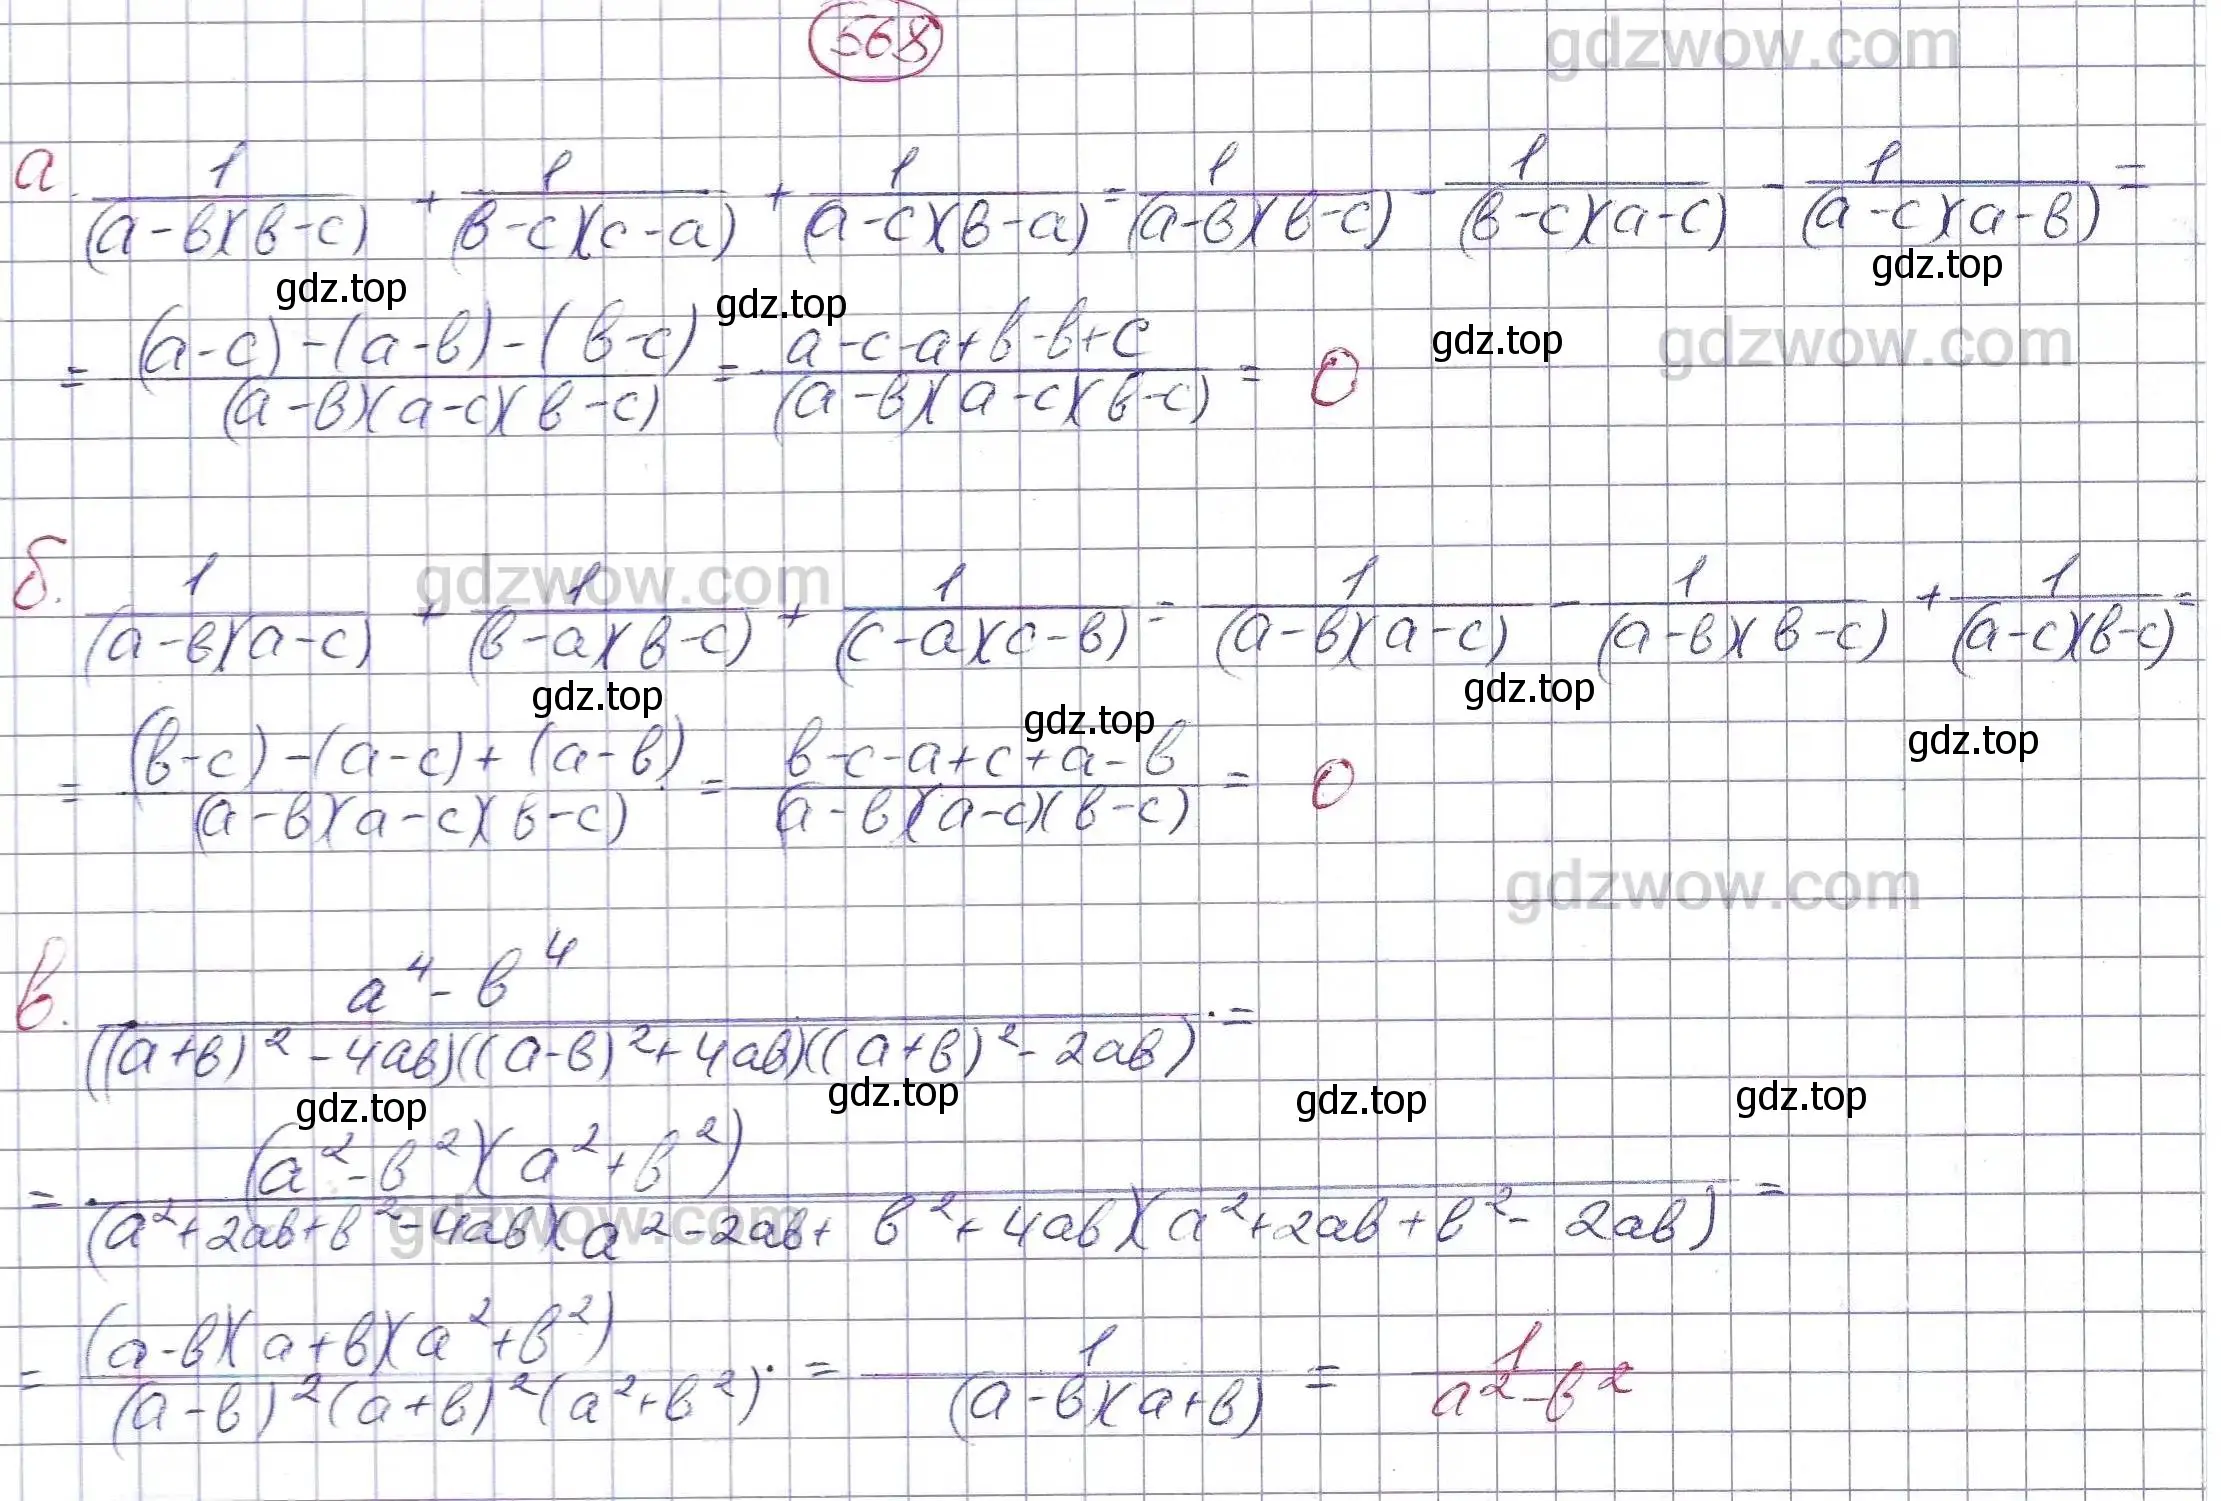 568
gdzwow.com
а. 1/((a-в)(в-c)) + 1/((в-c)(c-a)) + 1/((a-c)(в-a)) = 1/((a-в)(в-c)) - 1/((в-c)(a-c)) - 1/((a-c)(a-в)) =
gdz.top gdz.top gdz.top
= ((a-c)-(a-в)-(в-c))/((a-в)(a-c)(в-c)) = (a-c-a+в-в+c)/((a-в)(a-c)(в-c)) = 0
gdz.top gdzwow.com
б. 1/((a-в)(a-c)) + 1/((в-a)(в-c)) + 1/((c-a)(c-в)) = 1/((a-в)(a-c)) - 1/((a-в)(в-c)) + 1/((a-c)(в-c)) =
gdzwow.com
gdz.top gdz.top gdz.top gdz.top
= ((в-c)-(a-c)+(a-в))/((a-в)(a-c)(в-c)) = (в-c-a+c+a-в)/((a-в)(a-c)(в-c)) = 0
gdzwow.com
в. (a⁴-в⁴)/(((a+в)²-4aв)((a-в)²+4aв)((a+в)²-2aв)) =
gdz.top gdz.top gdz.top gdz.top
= ((a²-в²)(a²+в²))/((a²+2aв+в²-4aв)(a²-2aв+в²+4aв)(a²+2aв+в²-2aв)) =
gdzwow.com
= ((a-в)(a+в)(a²+в²))/((a-в)²(a+в)²(a²+в²)) = 1/((a-в)(a+в)) = 1/(a²-в²)